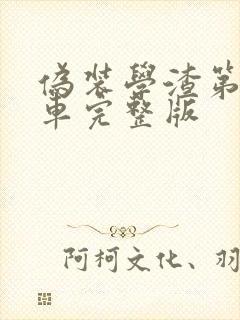 偽裝學渣第
車完整版
阿柯文化、羽